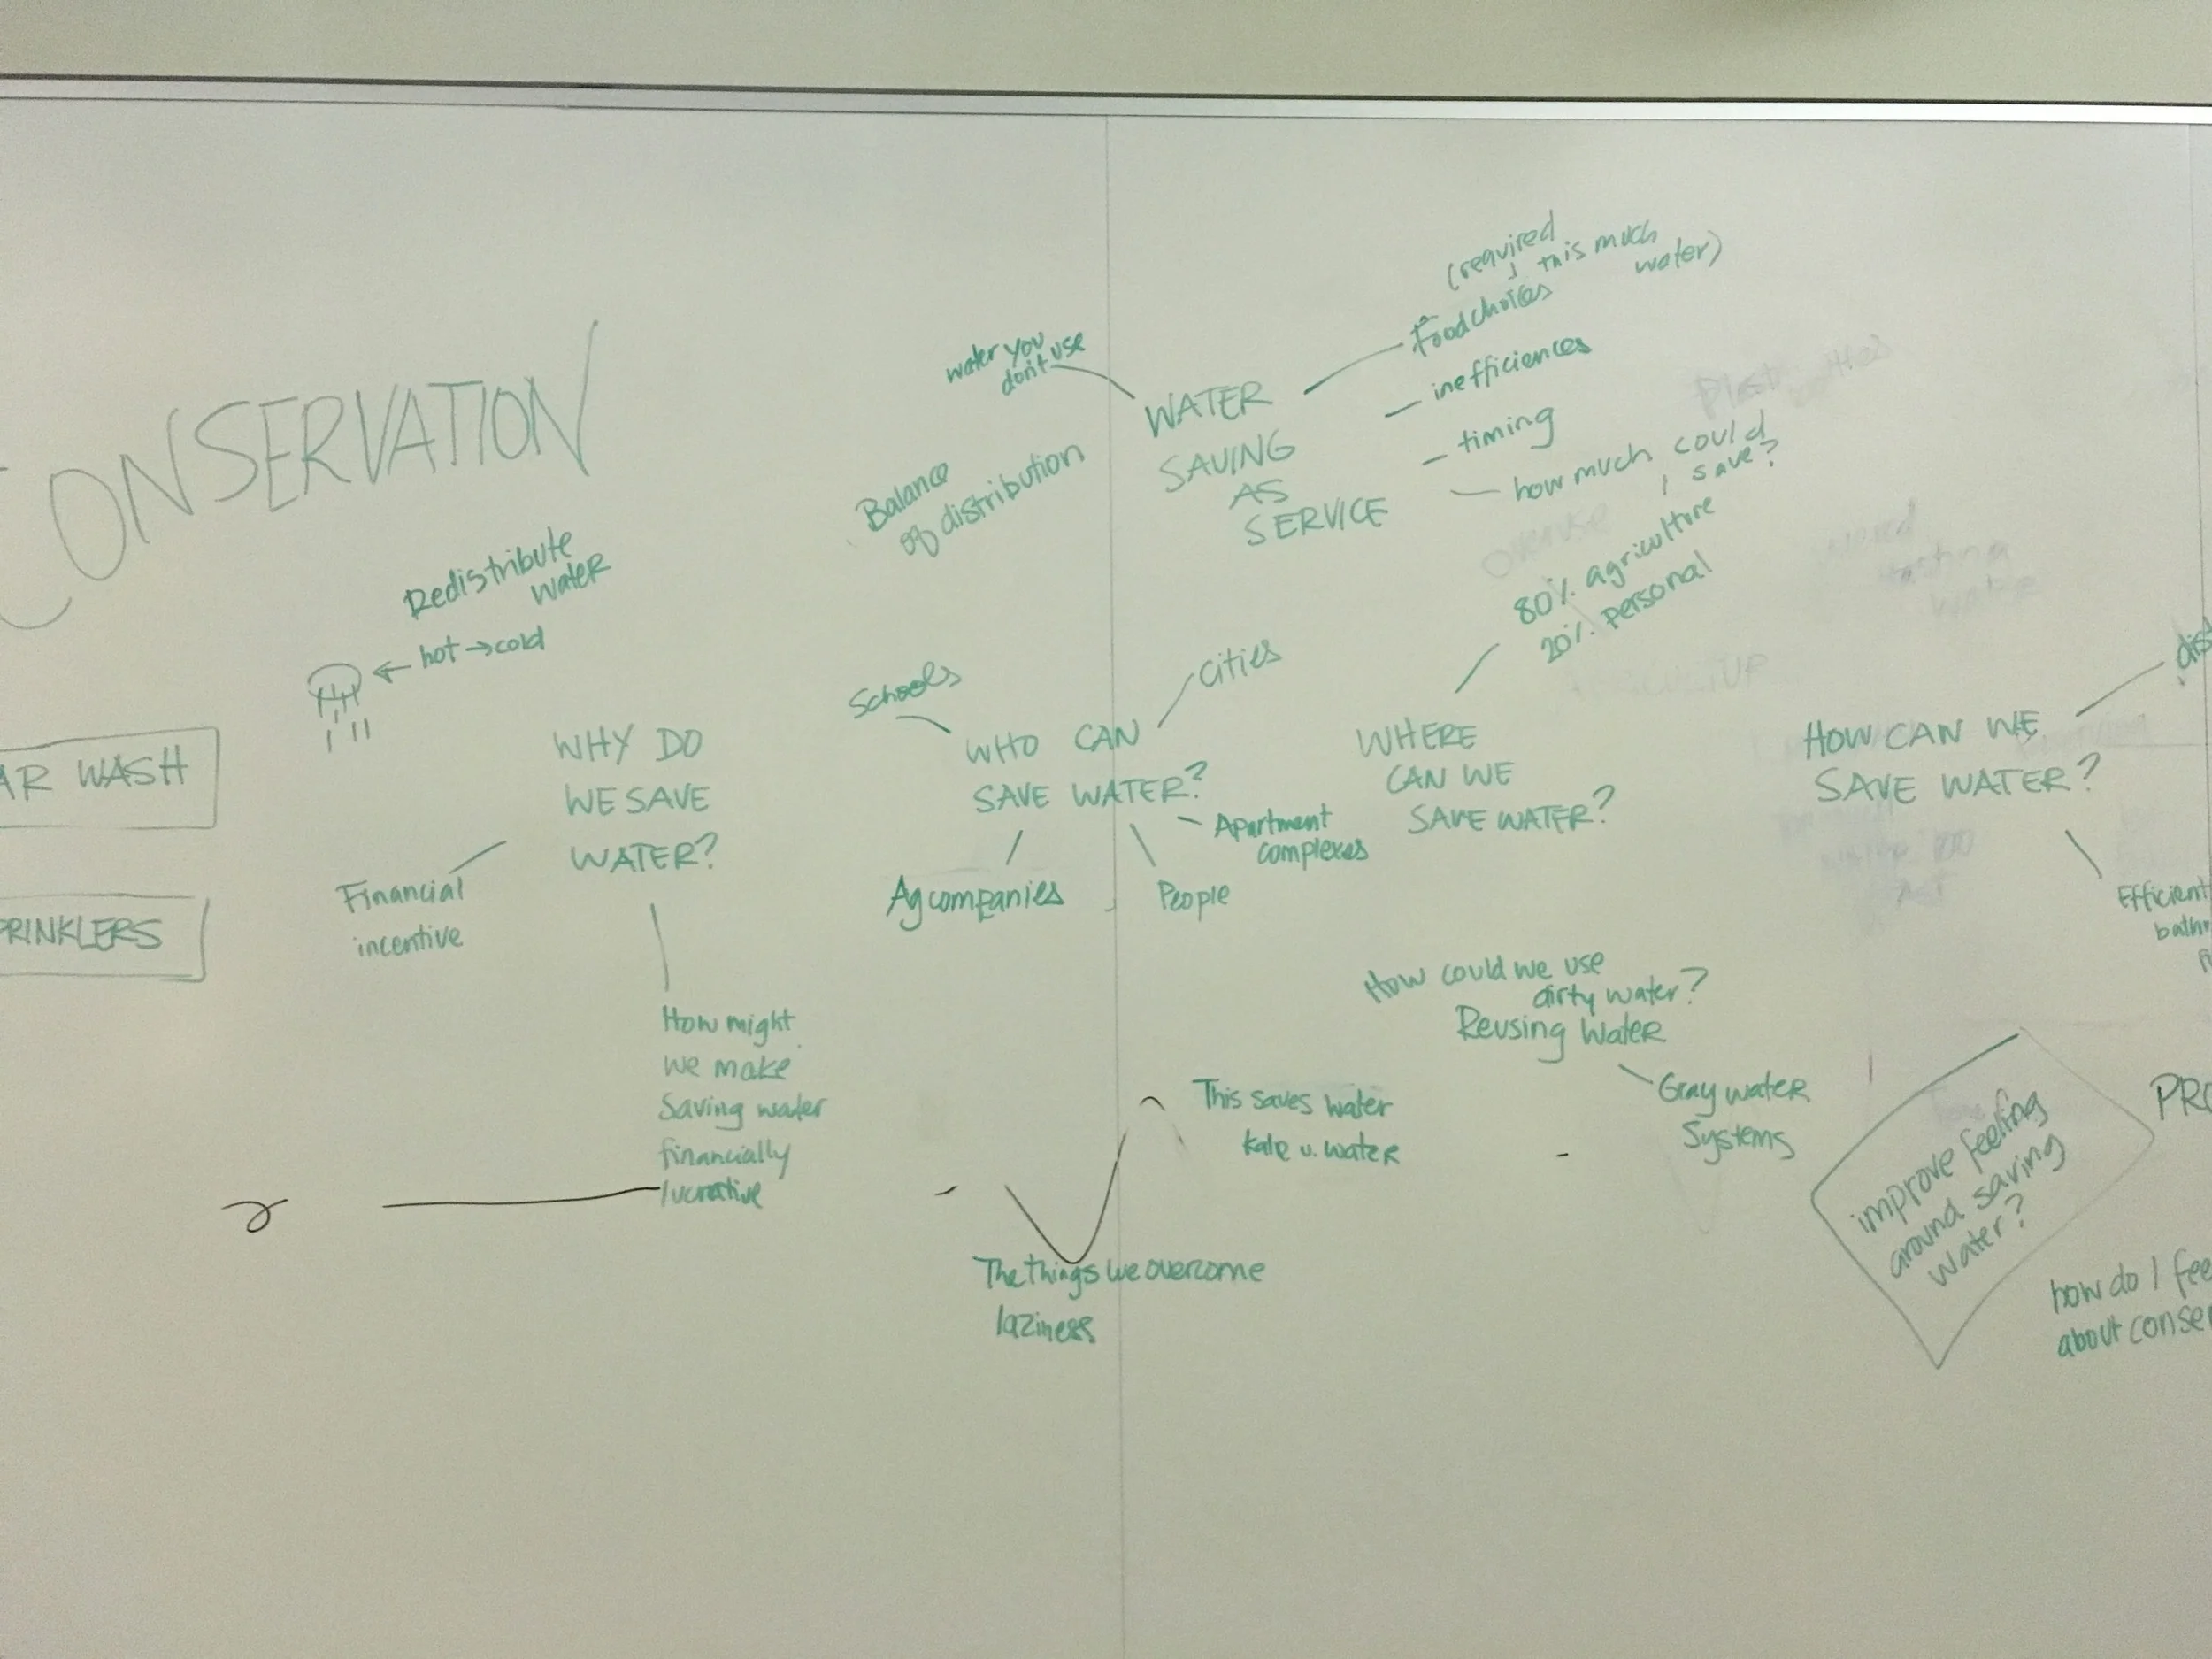 CONSERVATION
Redistribute
water
hot → cold
AR WASH
PRINKLERS
WHY DO
WE SAVE
WATER?
Financial
incentive
How might
we make
Saving water
financially
lucrative
water you
don't use
Balance
of distribution
WATER
SAVING
AS
SERVICE
(required
this much
water)
Food choices
inefficiences
timing
how much could
I save?
80% agriculture
20% personal
Schools
Cities
WHO CAN
SAVE WATER?
Ag companies
People
Apartment
complexes
WHERE
CAN WE
SAVE WATER?
HOW CAN WE
SAVE WATER?
dis
Efficient
bath
How could we use
dirty water?
Reusing Water
Gray water
Systems
This saves water
Kale v. water
The things we overcome
laziness
improve feeling
around saving
water?
PRO
how do I fee
about conser